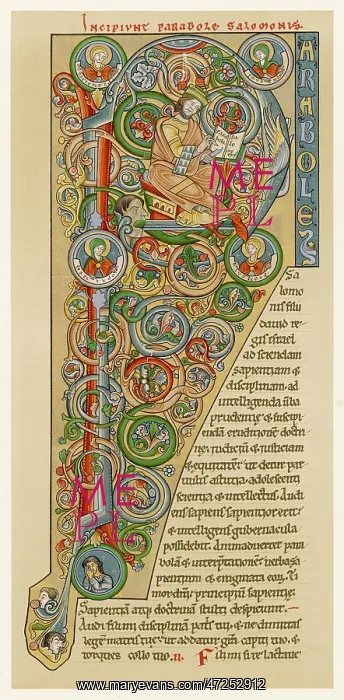 Incipiunt parabole Salomonis.
PARABOLES
Salo
monis filii
dauid re-
gis israel
ad sciendam
sapientiam &
disciplinam. ad
intelligenda uba
prudentie. & suscipi-
endā eruditione doctri-
ne. iudiciū & iusticiam
& equitatē. ut detur par-
uulis astutia. adolescenti
scientia & intellectus. Audi
ens sapiens sapientior erit.
& intelligens gubernacula
possidebit. Animaduertet para
bolā & interpretatione. uerba sa-
pientium & enigmata eorū. Ti
mor dn̄i principiū sapientie.
Sapientiā atq; doctrinā stulti despiciunt.
Audi fili mi disciplinā patris tui. & ne dimittas
legē matris tue. ut addatur grā capiti tuo. &
torques collo tuo. ii. Fili mi si te lactaue
ME
PL
ME
PL
www.maryevans.com/47252912